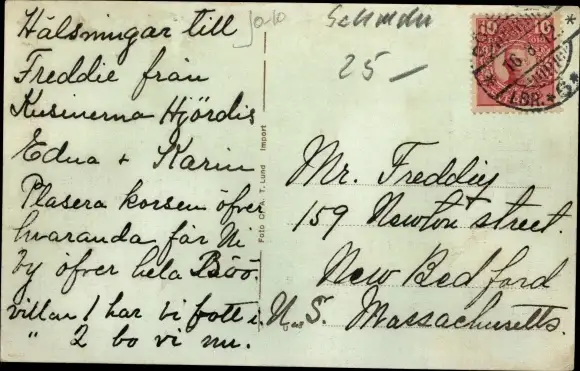 Hälsningar till
Freddie från
Kusinerna Hjördis
Edna + Karin
Plasera korsen öfver
hvaranda får Ni
by öfver hela Böö.
villan 1 har vi bott i.
" 2 bo vi nu.
Foto C. A. T. Lund Import
25 —
10 10
16. 8
LBR.
Mr. Freddie
159 Newton street.
New Bedford
U. S. Massachusetts.